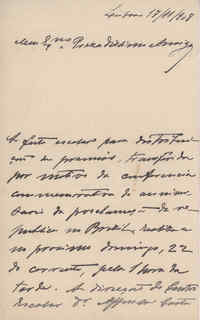 Lisboa 17/11/908
Meu Exmo Prezadissimo Amigo
A festa escolar para distribui
ção de premios, transferida
por motivo da conferencia
commemorativa do anniver
sario da proclamação da re
publica no Brazil, realisa-se
no proximo domingo, 22
do corrente, pela 1 hora da
tarde. A direcção do Centro
Escolar Dr. Affonso Costa